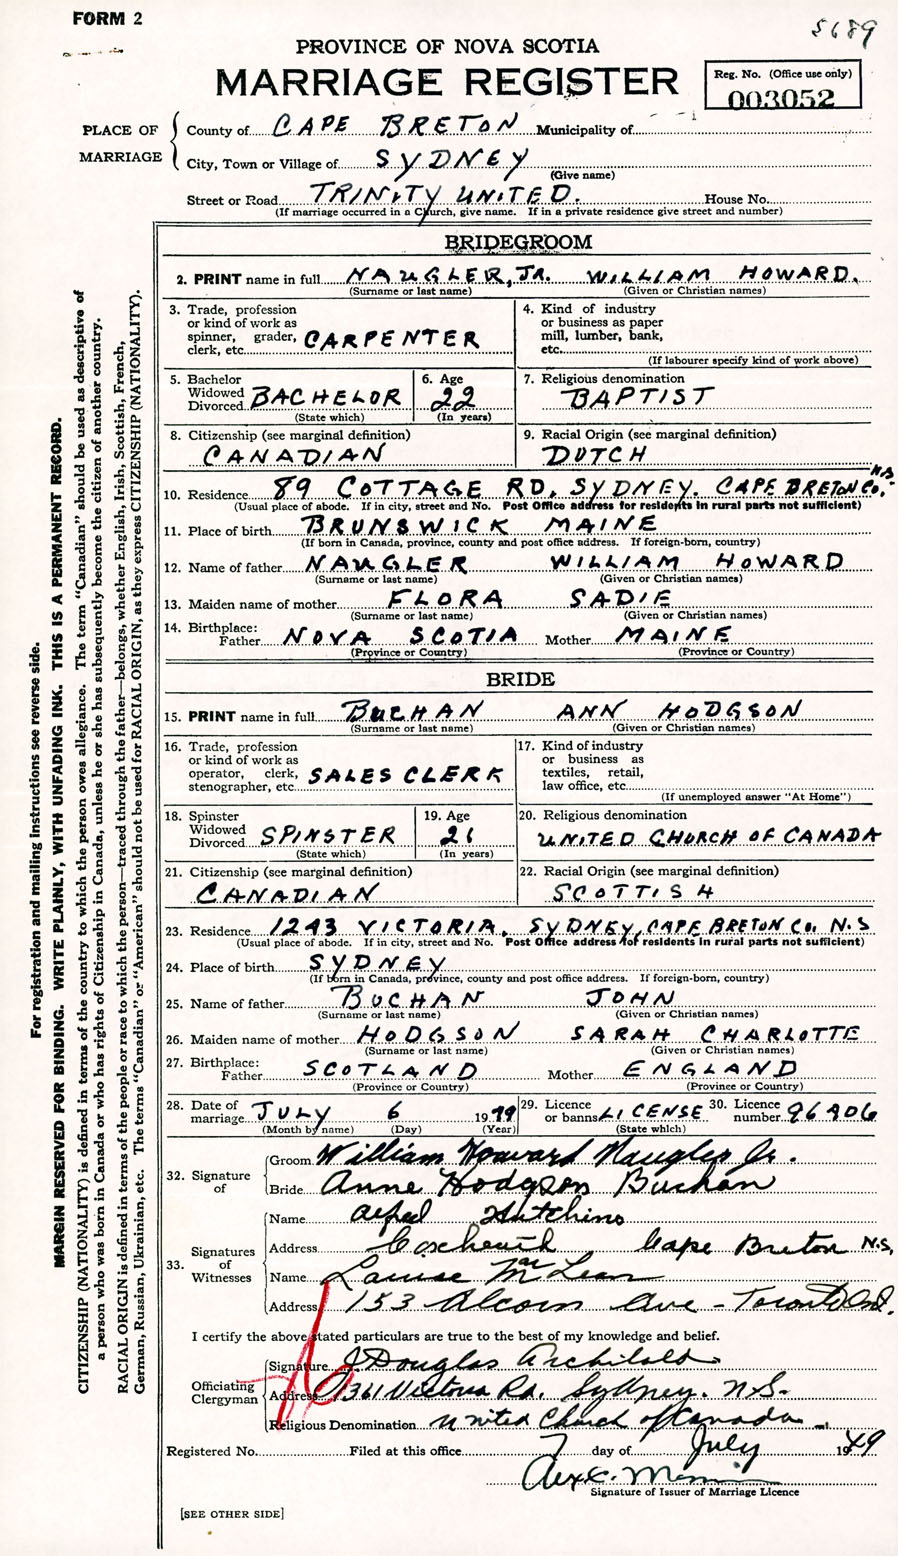 FORM 2
5689
PROVINCE OF NOVA SCOTIA
MARRIAGE REGISTER
Reg. No. (Office use only)
003052
PLACE OF MARRIAGE
County of CAPE BRETON Municipality of
City, Town or Village of SYDNEY
(Give name)
Street or Road TRINITY UNITED. House No.
(If marriage occurred in a Church, give name. If in a private residence give street and number)
BRIDEGROOM
2. PRINT name in full NAUGLER, JR. WILLIAM HOWARD.
(Surname or last name) (Given or Christian names)
3. Trade, profession
or kind of work as
spinner, grader,
clerk, etc. CARPENTER
4. Kind of industry
or business as paper
mill, lumber, bank,
etc.
(If labourer specify kind of work above)
5. Bachelor
Widowed
Divorced BACHELOR
(State which)
6. Age
22
(In years)
7. Religious denomination
BAPTIST
8. Citizenship (see marginal definition)
CANADIAN
9. Racial Origin (see marginal definition)
DUTCH
10. Residence 89 COTTAGE RD. SYDNEY. CAPE BRETON CO. N.S.
(Usual place of abode. If in city, street and No. Post Office address for residents in rural parts not sufficient)
11. Place of birth BRUNSWICK MAINE
(If born in Canada, province, county and post office address. If foreign-born, country)
12. Name of father NAUGLER WILLIAM HOWARD
(Surname or last name) (Given or Christian names)
13. Maiden name of mother FLORA SADIE
(Surname or last name) (Given or Christian names)
14. Birthplace:
Father NOVA SCOTIA Mother MAINE
(Province or Country) (Province or Country)
BRIDE
15. PRINT name in full BUCHAN ANN HODGSON
(Surname or last name) (Given or Christian names)
16. Trade, profession
or kind of work as
operator, clerk,
stenographer, etc. SALES CLERK
17. Kind of industry
or business as
textiles, retail,
law office, etc.
(If unemployed answer "At Home")
18. Spinster
Widowed
Divorced SPINSTER
(State which)
19. Age
21
(In years)
20. Religious denomination
UNITED CHURCH OF CANADA
21. Citizenship (see marginal definition)
CANADIAN
22. Racial Origin (see marginal definition)
SCOTTISH
23. Residence 1243 VICTORIA, SYDNEY, CAPE BRETON CO. N.S
(Usual place of abode. If in city, street and No. Post Office address for residents in rural parts not sufficient)
24. Place of birth SYDNEY
(If born in Canada, province, county and post office address. If foreign-born, country)
25. Name of father BUCHAN JOHN
(Surname or last name) (Given or Christian names)
26. Maiden name of mother HODGSON SARAH CHARLOTTE
(Surname or last name) (Given or Christian names)
27. Birthplace:
Father SCOTLAND Mother ENGLAND
(Province or Country) (Province or Country)
28. Date of
marriage JULY 6 19
(Month by name) (Day) (Year)
29. Licence
or banns LICENSE
(State which)
30. Licence
number 96906
32. Signature of
Groom William Howard Naugler Jr.
Bride Anne Hodgson Buchan
33. Signatures of Witnesses
Name Alfred Hutchins
Address Coxheath Cape Breton N.S,
Name Louise McLean
Address 153 Alcorn Ave - Toronto Ont.
I certify the above stated particulars are true to the best of my knowledge and belief.
Officiating Clergyman
Signature J. Douglas Archibald
Address 1361 Victoria Rd. Sydney. N.S.
Religious Denomination United Church of Canada
Registered No. Filed at this office 7 day of July 1949
Alex C.
Signature of Issuer of Marriage Licence
[SEE OTHER SIDE]
For registration and mailing instructions see reverse side.
MARGIN RESERVED FOR BINDING. WRITE PLAINLY, WITH UNFADING INK. THIS IS A PERMANENT RECORD.
CITIZENSHIP (NATIONALITY) is defined in terms of the country to which the person owes allegiance. The term "Canadian" should be used as descriptive of
a person who was born in Canada or who has rights of Citizenship in Canada, unless he or she has subsequently become the citizen of another country.
RACIAL ORIGIN is defined in terms of the people or race to which the person—traced through the father—belongs, whether English, Irish, Scottish, French,
German, Russian, Ukrainian, etc. The terms "Canadian" or "American" should not be used for RACIAL ORIGIN, as they express CITIZENSHIP (NATIONALITY).